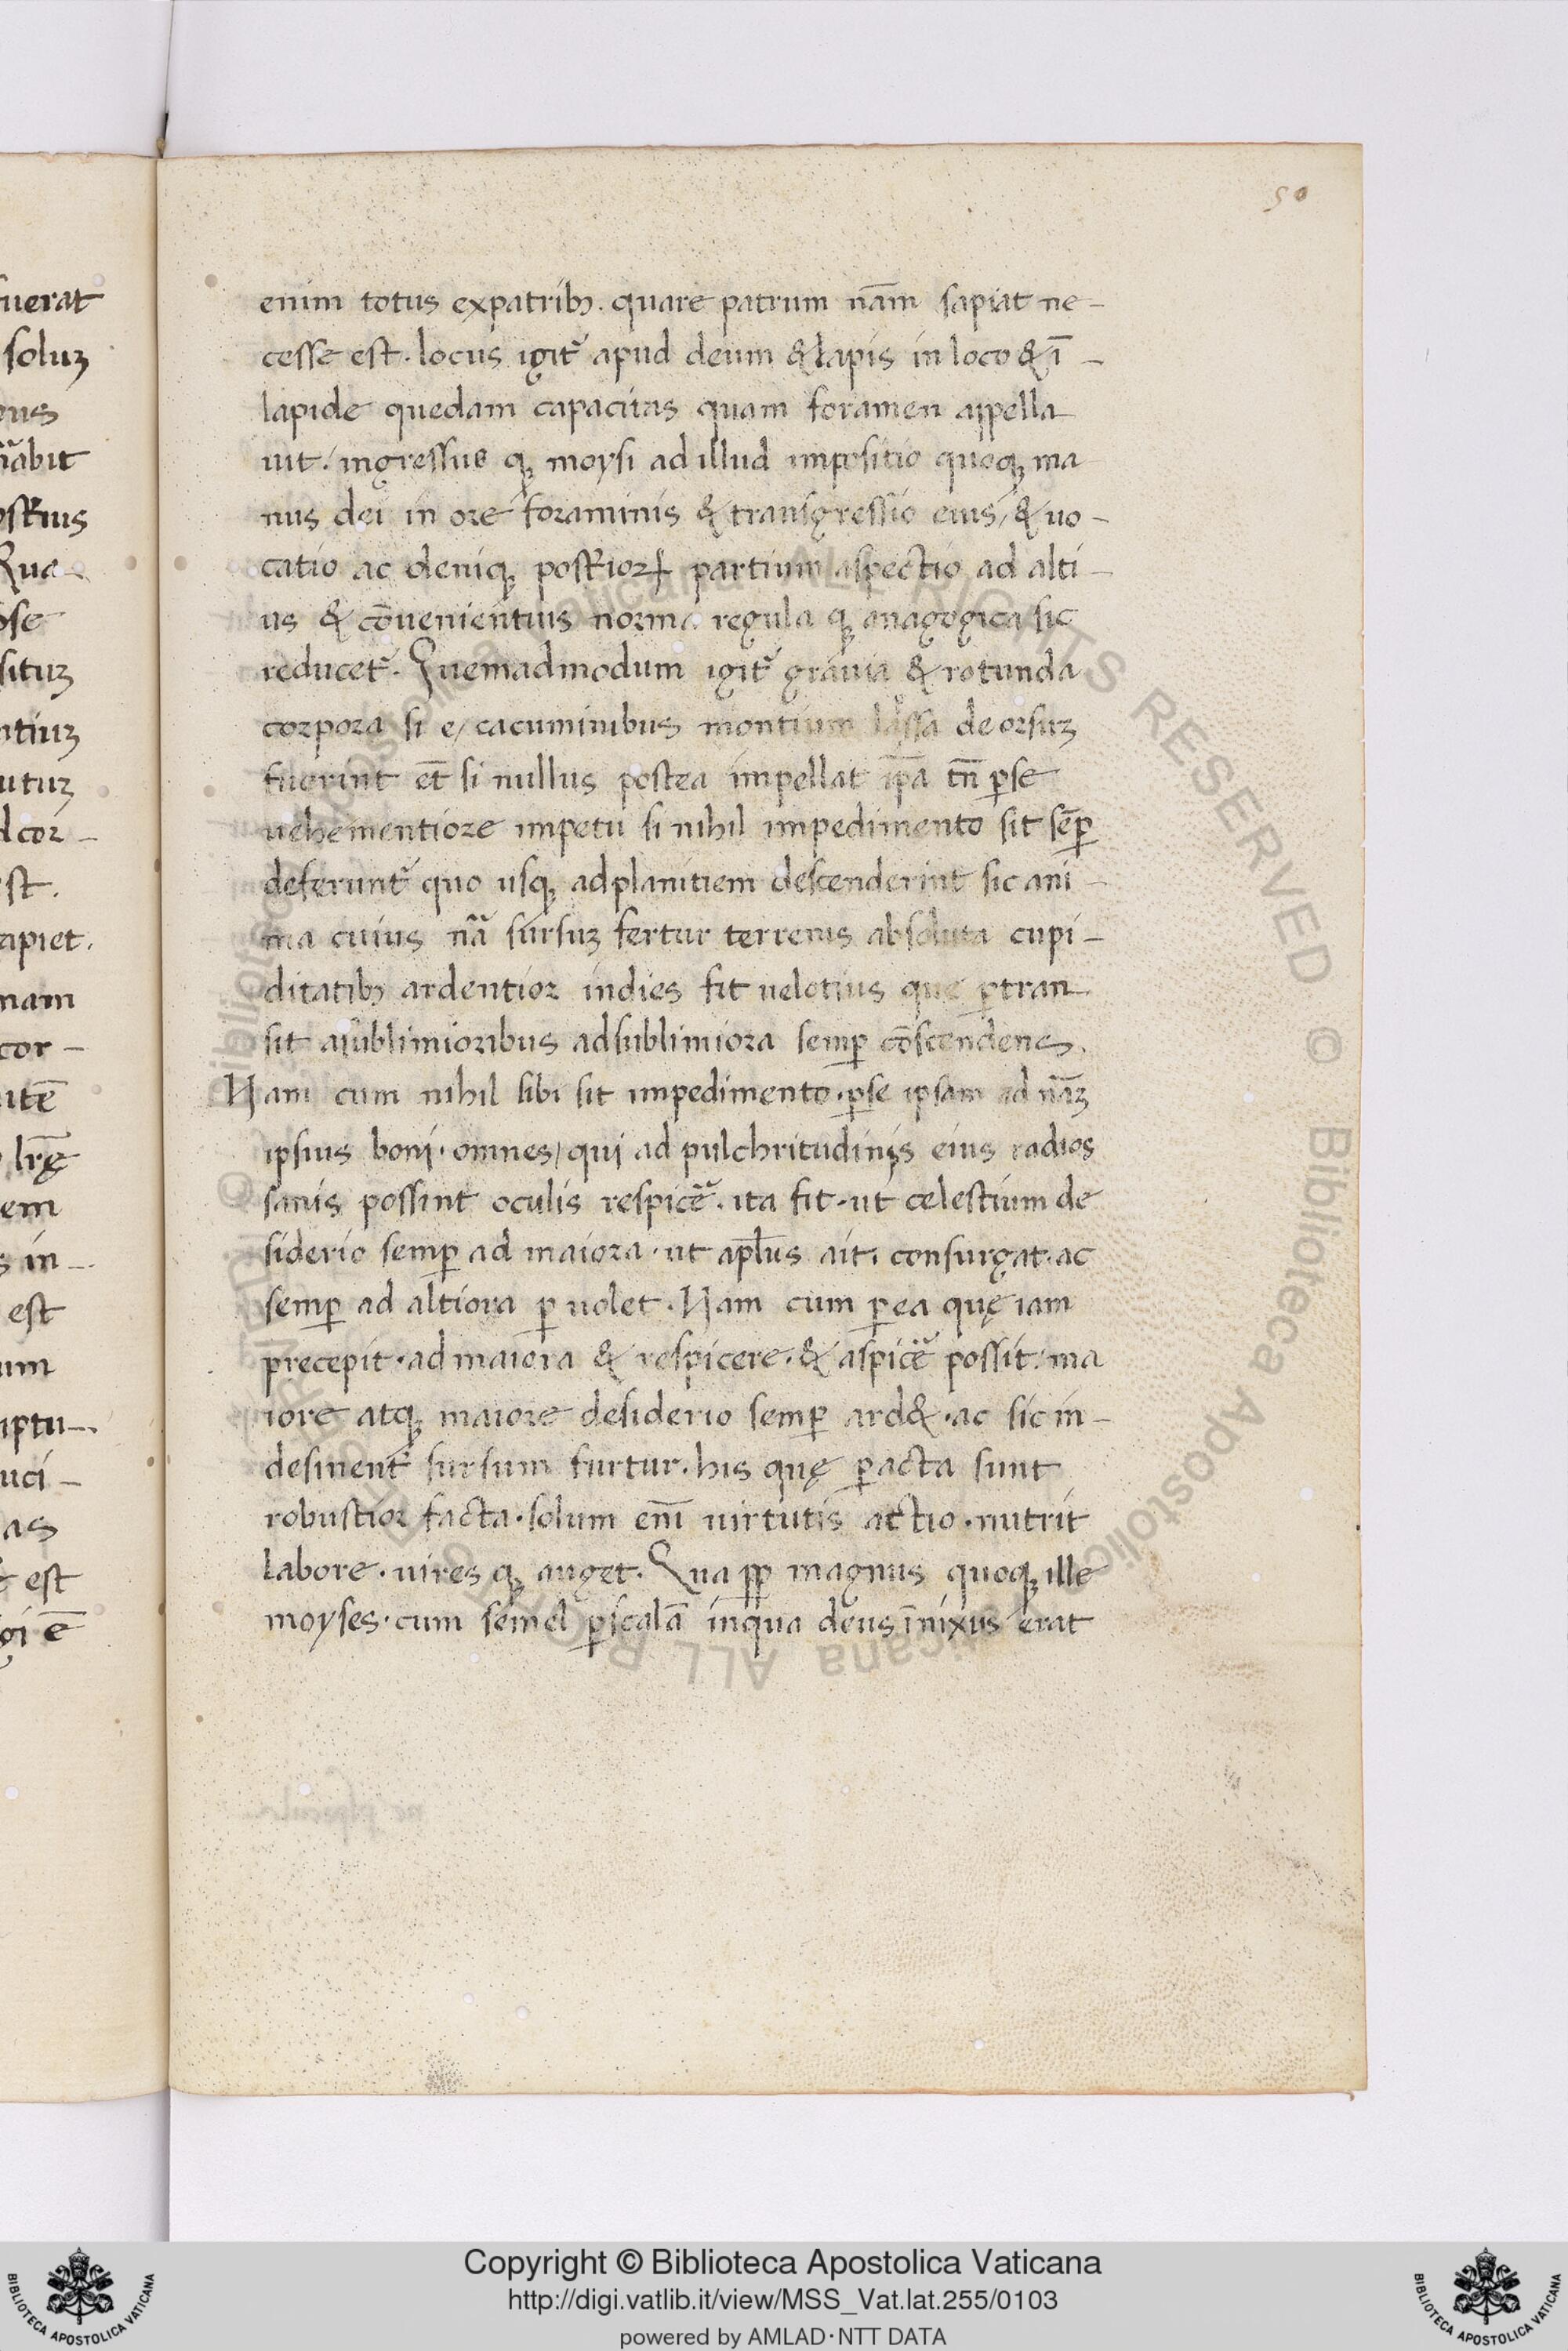 50
enim totus expatribꝫ. quare patrum nām sapiat ne-
cesse est. locus igit᷑ apud deum & lapis in loco & ī-
lapide quedam capacitas quam foramen appella
uit / ingressus qꝫ moysi ad illud impositio quoqꝫ ma
nus dei in ore foraminis & transgressio eius / & uo-
catio ac deniqꝫ post̄rioꝝ partium aspectio ad alti-
us & cōuenientius norma regula qꝫ anagogica sic
reducet᷑. Quemadmodum igit᷑ grauia & rotunda
corpora si e / cacuminibus montium lassa deorsuꝫ
fuerint et̄ si nullus postea impellat ip̄a tn̄ ꝑse
uehementiore impetu si nihil impedimento sit sēꝑ
deferunt᷑ quo usqꝫ adplanitiem descenderint sic ani-
ma cuius nā sursuꝫ fertur terrenis absoluta cupi-
ditatibꝫ ardentior indies fit uelotius que ꝑtran
sit asublimioribus adsublimiora semꝑ cōscendens.
Nam cum nihil sibi sit impedimento. ꝑse ipsam ad nāꝫ
ipsius boni. omnes / qui ad pulchritudinis eius radios
sanis possint oculis respicē. ita fit. ut celestium de
siderio semꝑ ad maiora. ut apl̄us ait. consurgat. ac
semꝑ ad altiora ꝑ uolet. Nam cum ꝑ ea quę iam
precepit. ad maiora & respicere. & aspicē possit. ma
iore atqꝫ maiore desiderio semꝑ ard&. ac sic in-
desinent᷑ sursum furtur. his quę ꝑacta sunt
robustior facta. solum enī uirtutis actio. nutrit
labore. uires qꝫ auget. Qua ꝓꝑ magnus quoqꝫ ille
moyses. cum semel ꝑscalā inqua deus īnixus erat
uerat
soluꝫ
st.
apiet.
nam
cor-
em
s in-
est
um
as
est
Copyright © Biblioteca Apostolica Vaticana
http://digi.vatlib.it/view/MSS_Vat.lat.255/0103
powered by AMLAD·NTT DATA
BIBLIOTECA APOSTOLICA VATICANA
BIBLIOTECA APOSTOLICA VATICANA
© Biblioteca Apostolica Vaticana ALL RIGHTS RESERVED © Biblioteca Apostolica Vaticana ALL RIGHTS RESERVED